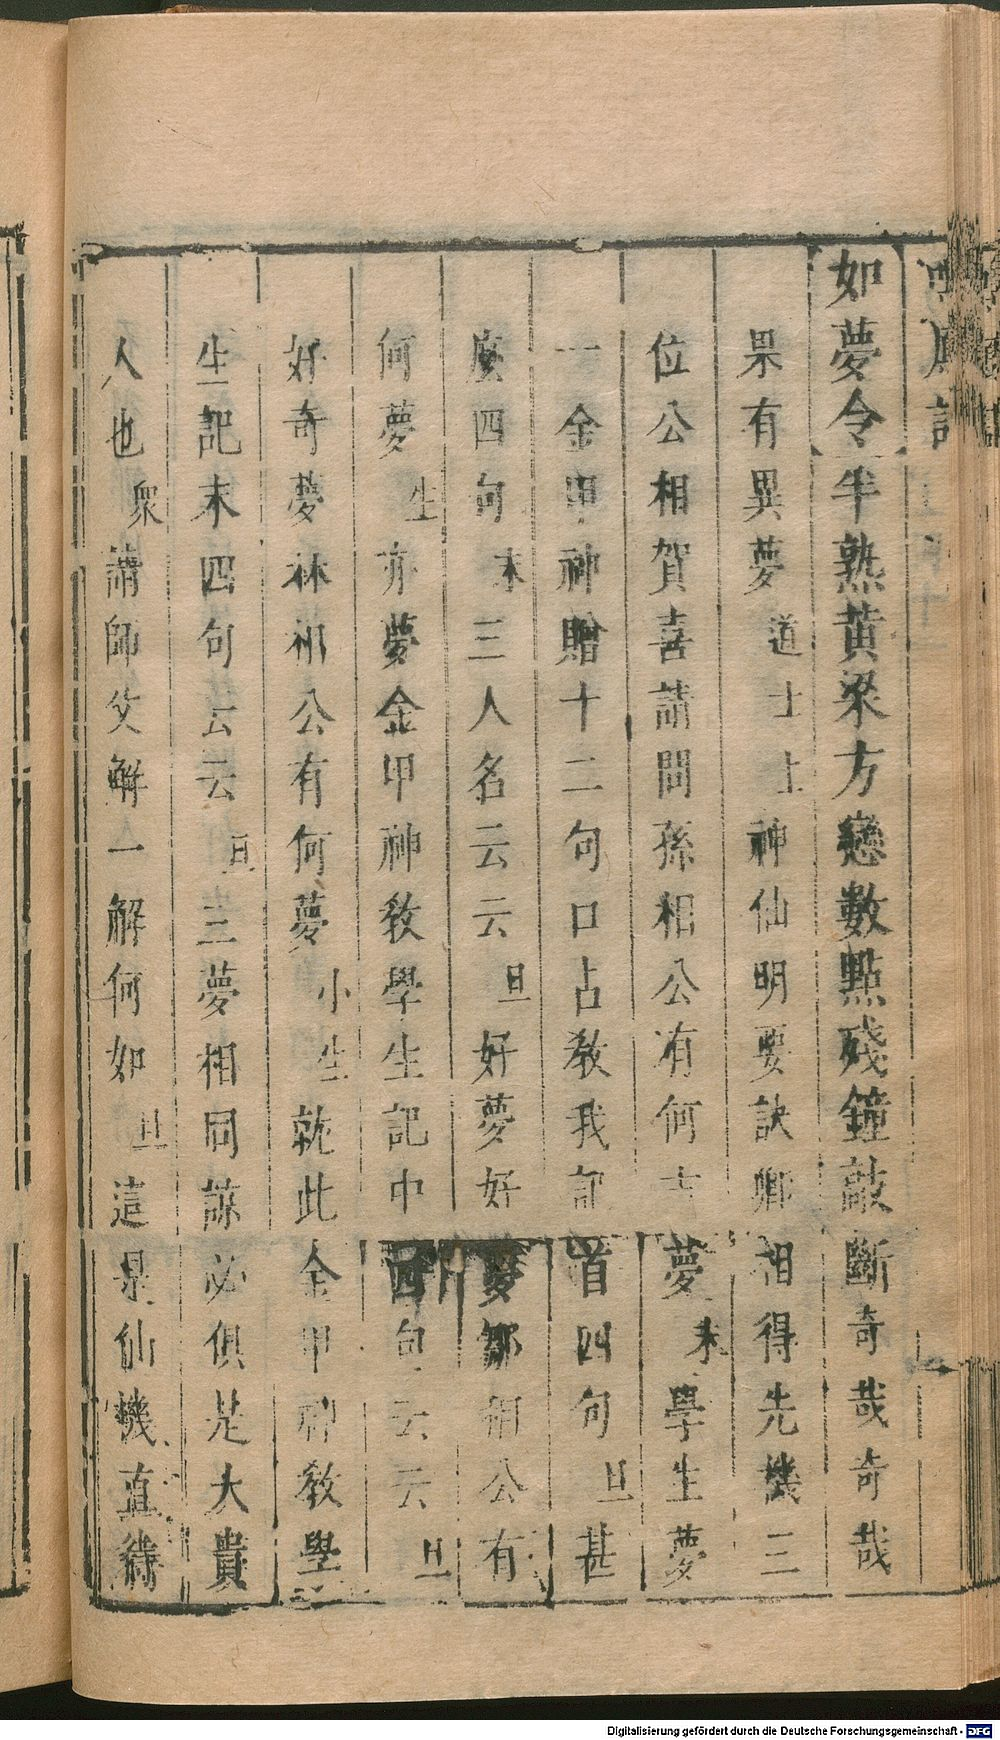 如夢令半熟黄梁方戀數點殘鐘敲斷奇哉奇哉
果有異夢道士上神仙明要訣卿相得先機三
位公相賀喜請問孫相公有何吉夢末學生夢
一金甲神贈十二句口占教我記首四句旦甚
麼四句末三人名云云旦好夢好夢鄒相公有
何夢生亦夢金甲神教學生記中四句云云旦
好奇夢林相公有何夢小生就此金甲神教學
生記末四句云云旦三夢相同諒必俱是大貴
人也衆請師父解一解何如旦這是仙機直待
Digitalisierung gefördert durch die Deutsche Forschungsgemeinschaft - DFG